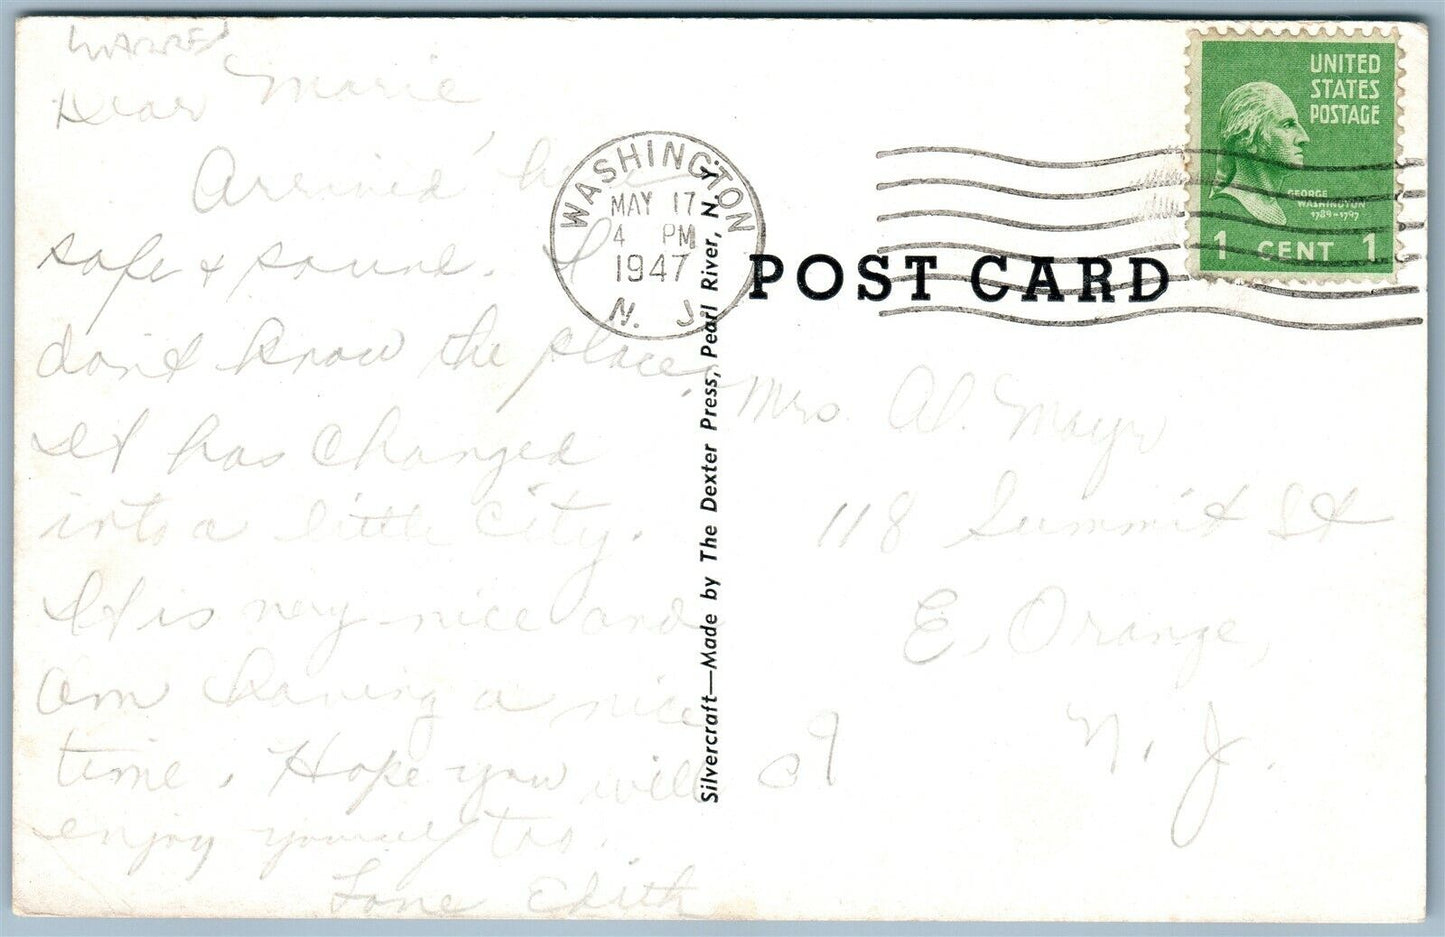 Dear Marie
Arrived here
safe & sound. I
don't know the place,
It has changed
into a little city.
It is very nice and
am having a nice
time. Hope you will
enjoy yourself too.
Love Edith
WASHINGTON
MAY 17
4 PM
1947
N. J.
Silvercraft—Made by The Dexter Press, Pearl River, N. Y.
POST CARD
UNITED
STATES
POSTAGE
GEORGE
WASHINGTON
1789-1797
1 CENT 1
Mrs. Al. Mayr
118 Summit St
E. Orange,
N. J.